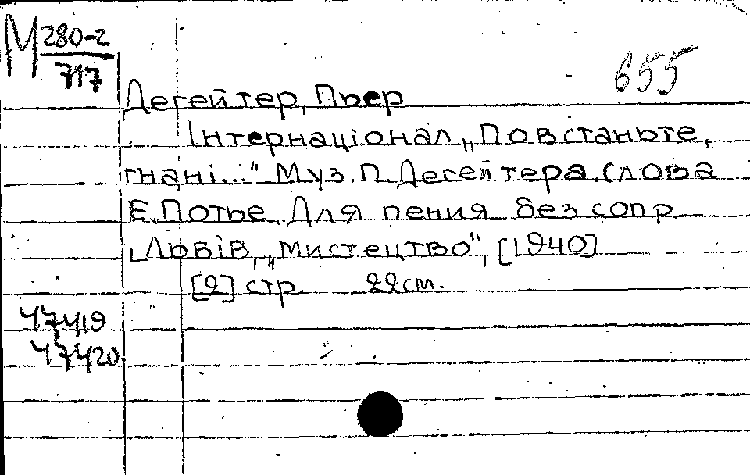 М 280-2
717
655
Дегейтер, Пьер
Інтернаціонал „Повстаньте,
гнані..." Муз. П. Дегейтера. Слова
Е. Потье. Для пения без сопр.
Львів, „Мистецтво", [1940]
[2] стр 22см.
47419
47420